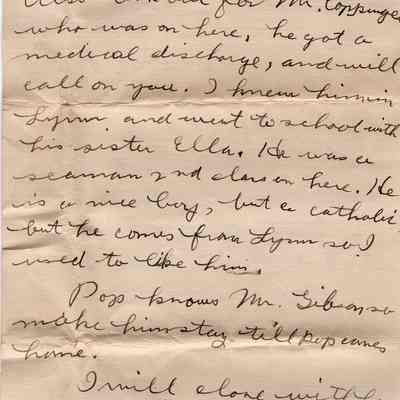 for Mr. Coppinger
who was on here, he got a
medical discharge, and will
call on you. I knew him in
Lynn and went to school with
his sister Ella. He was a
seaman 2nd class on here. He
is a nice boy, but a catholic
but he comes from Lynn so I
used to like him.
Pop knows Mr. Gibson so
make him stay till pop comes
home.
I will close with